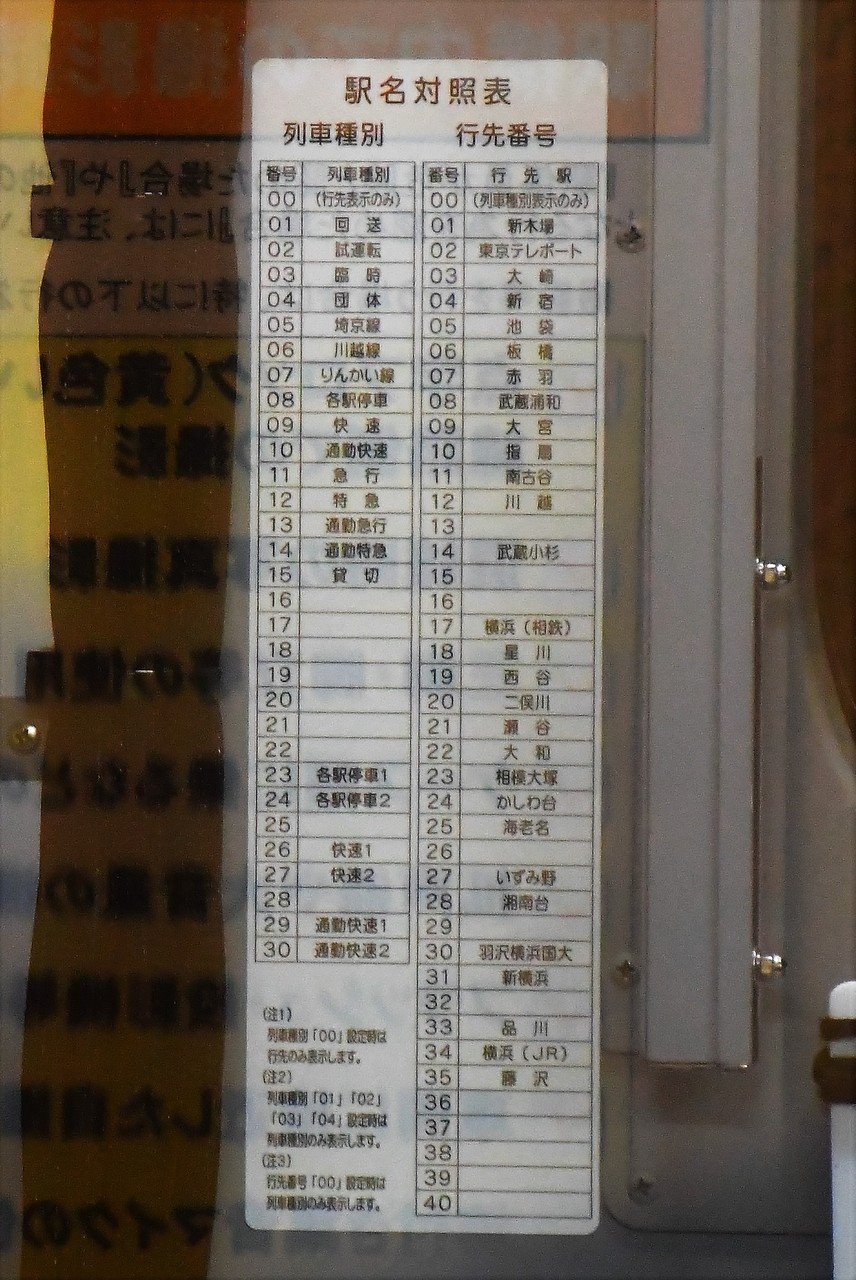 駅名対照表
列車種別
番号 列車種別
00 (行先表示のみ)
01 回送
02 試運転
03 臨時
04 団体
05 埼京線
06 川越線
07 りんかい線
08 各駅停車
09 快速
10 通勤快速
11 急行
12 特急
13 通勤急行
14 通勤特急
15 貸切
16
17
18
19
20
21
22
23 各駅停車1
24 各駅停車2
25
26 快速1
27 快速2
28
29 通勤快速1
30 通勤快速2
(注1)
列車種別「00」設定時は
行先のみ表示します。
(注2)
列車種別「01」「02」
「03」「04」設定時は
列車種別のみ表示します。
(注3)
行先番号「00」設定時は
列車種別のみ表示します。
行先番号
番号 行先駅
00 (列車種別表示のみ)
01 新木場
02 東京テレポート
03 大崎
04 新宿
05 池袋
06 板橋
07 赤羽
08 武蔵浦和
09 大宮
10 指扇
11 南古谷
12 川越
13
14 武蔵小杉
15
16
17 横浜(相鉄)
18 星川
19 西谷
20 二俣川
21 瀬谷
22 大和
23 相模大塚
24 かしわ台
25 海老名
26
27 いずみ野
28 湘南台
29
30 羽沢横浜国大
31 新横浜
32
33 品川
34 横浜(JR)
35 藤沢
36
37
38
39
40